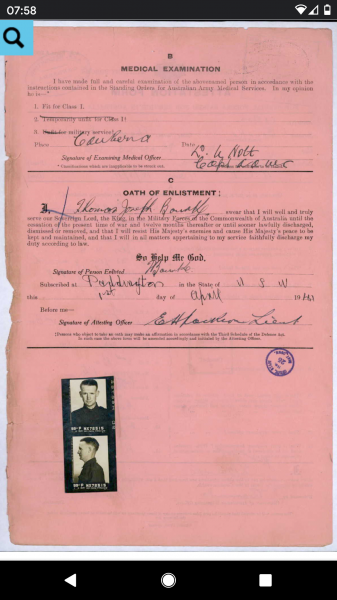 07:58
B
MEDICAL EXAMINATION
I have made full and careful examination of the abovenamed person in accordance with the
instructions contained in the Standing Orders for Australian Army Medical Services. In my opinion
he is—*
1. Fit for Class I.
2. Temporarily unfit for Class I
3. Unfit for military service
Place Canberra Date
Signature of Examining Medical Officer
* Inapplicable to be struck out.
C
OATH OF ENLISTMENT
I, Thomas Joseph swear that I will well and truly
serve our Sovereign Lord, the King, in the Military Forces of the Commonwealth of Australia until the
cessation of the present time of war and twelve months thereafter or until sooner lawfully discharged,
dismissed or removed, and that I will resist His Majesty's enemies and cause His Majesty's peace to be
kept and maintained, and that I will in all matters appertaining to my service faithfully discharge my
duty according to law.
So Help Me God.
Signature of Person Enlisted
Subscribed at Paddington in the State of N S W
this 1st day of April 19
Before me—
Signature of Attesting Officer Lieut
(Persons who object to take an oath may make an affirmation in accordance with the Third Schedule of the Defence Act.
In such case the above form will be amended accordingly and initialed by the Attesting Officer).